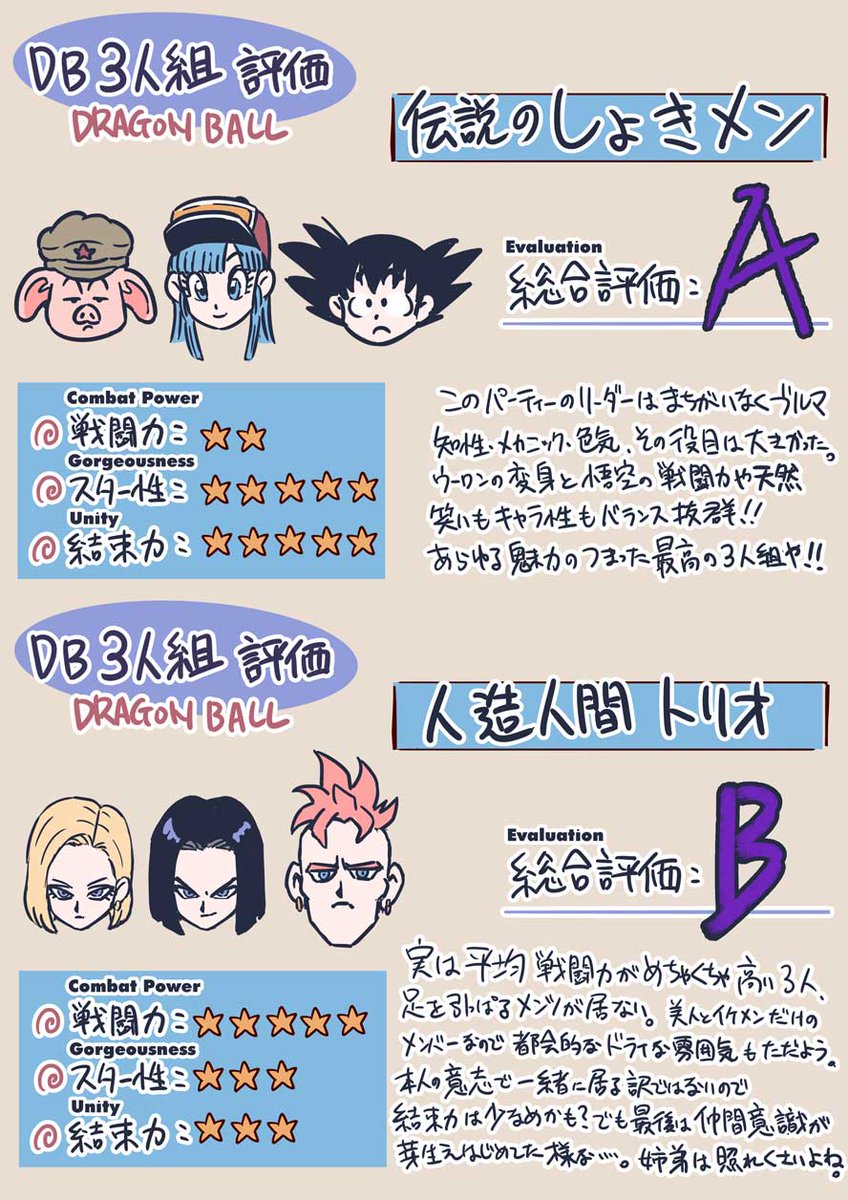 DB3人組 評価
DRAGON BALL
伝説のしょきメン
Evaluation
総合評価: A
Combat Power
戦闘力: ☆☆
Gorgeousness
スター性: ☆☆☆☆☆
Unity
結束力: ☆☆☆☆☆
このパーティーのリーダーはまちがいなくブルマ
知性、メカニック、色気、その役目は大きかった。
ウーロンの変身と悟空の戦闘力や天然
笑いもキャラ性もバランス抜群!!
あらゆる魅力のつまった最高の3人組や!!
DB3人組 評価
DRAGON BALL
人造人間トリオ
Evaluation
総合評価: B
Combat Power
戦闘力: ☆☆☆☆☆
Gorgeousness
スター性: ☆☆☆
Unity
結束力: ☆☆☆
実は平均戦闘力がめちゃくちゃ高い3人、
足を引っぱるメンツが居ない。美人とイケメンだけの
メンバーなので都会的なドライな雰囲気もただよう。
本人の意志で一緒に居る訳ではないので
結束力は少なめかも?でも最後は仲間意識が
芽生えはじめてた様な…。姉弟は照れくさいよね。